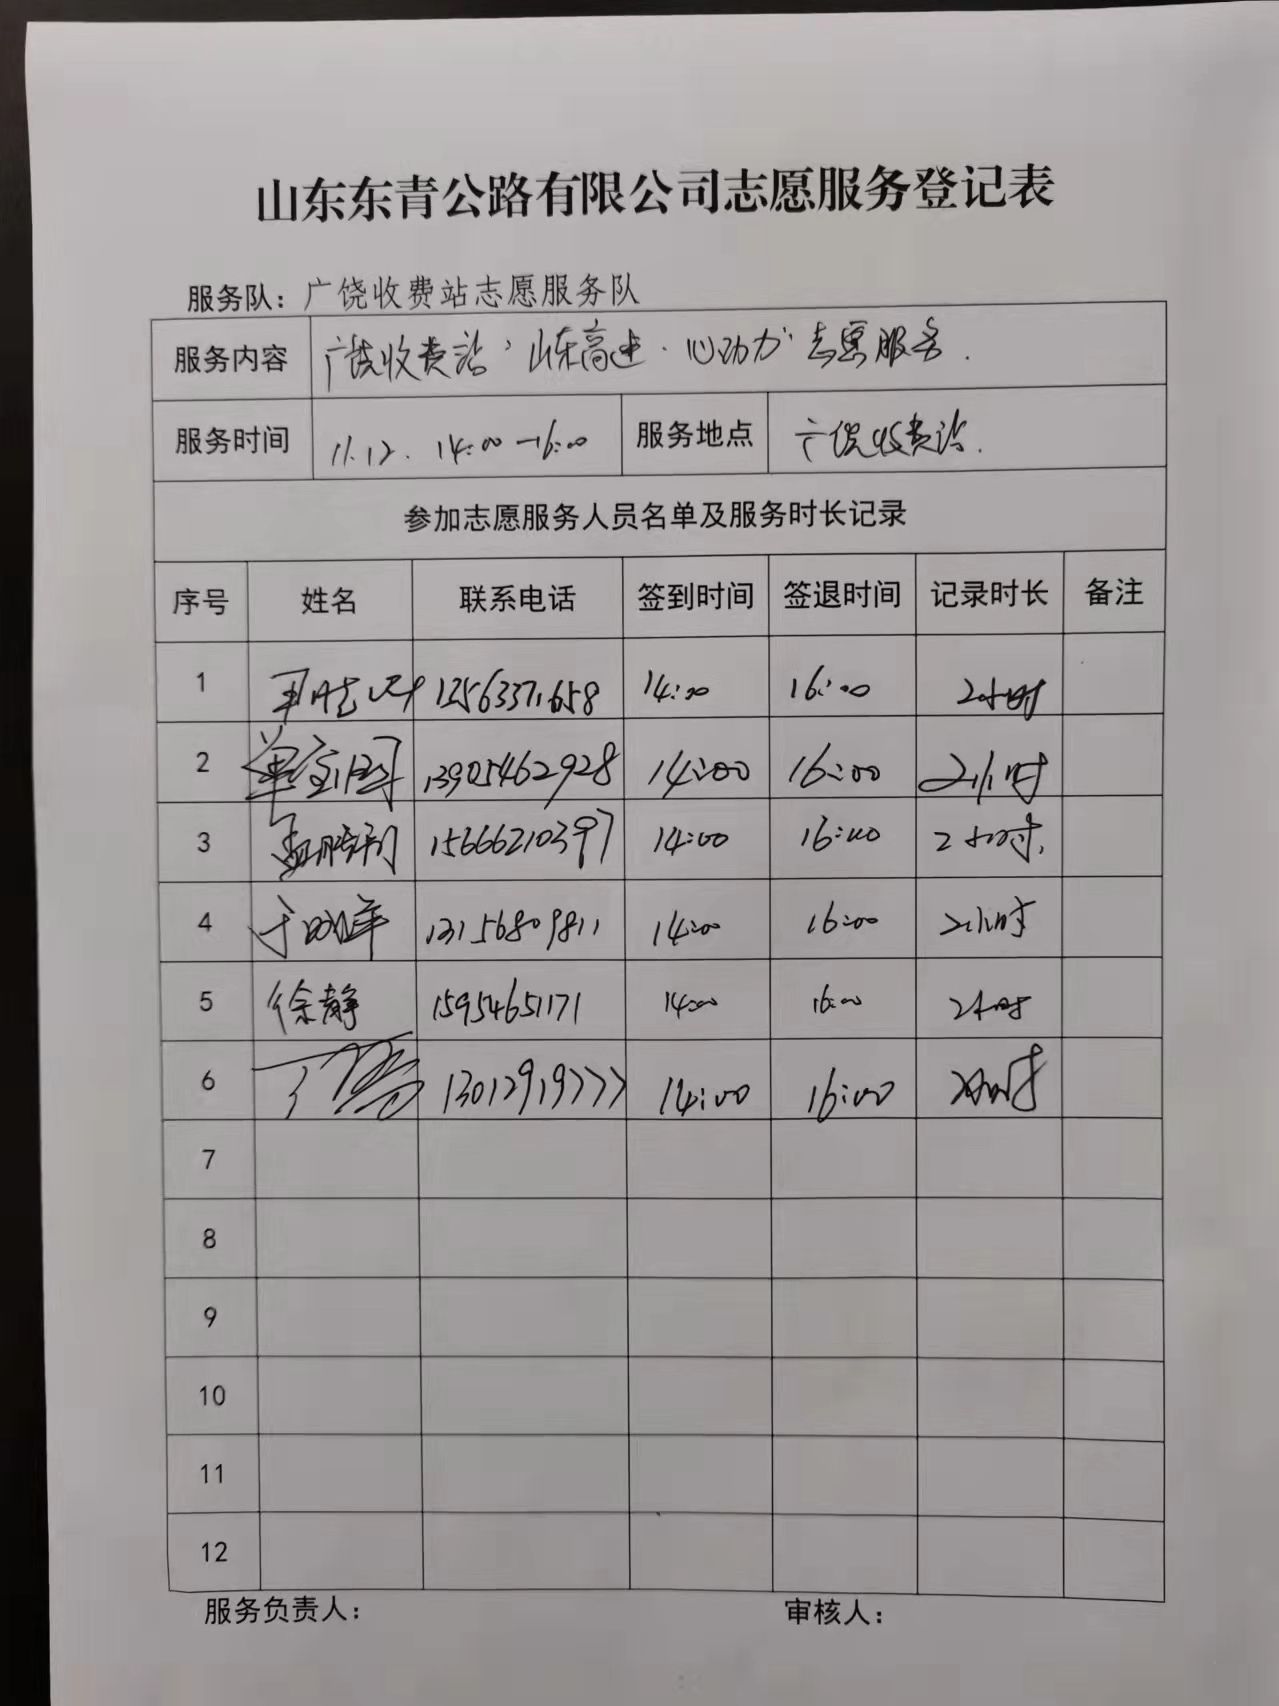 山东东青公路有限公司志愿服务登记表
服务队：广饶收费站志愿服务队
服务内容 广饶收费站“山东高速·心动力”志愿服务.
服务时间 11.12. 14:00-16:00 服务地点 广饶收费站.
参加志愿服务人员名单及服务时长记录
序号 姓名 联系电话 签到时间 签退时间 记录时长 备注
1 14:00 16:00 2小时
2 13905462928 14:00 16:00 2小时
3 15666210397 14:00 16:00 2小时.
4 13156809811 14:00 16:00 2小时
5 徐静 15954651171 14:00 16:00 2小时
6 丁 14:00 16:00 2小时
7
8
9
10
11
12
服务负责人： 审核人：